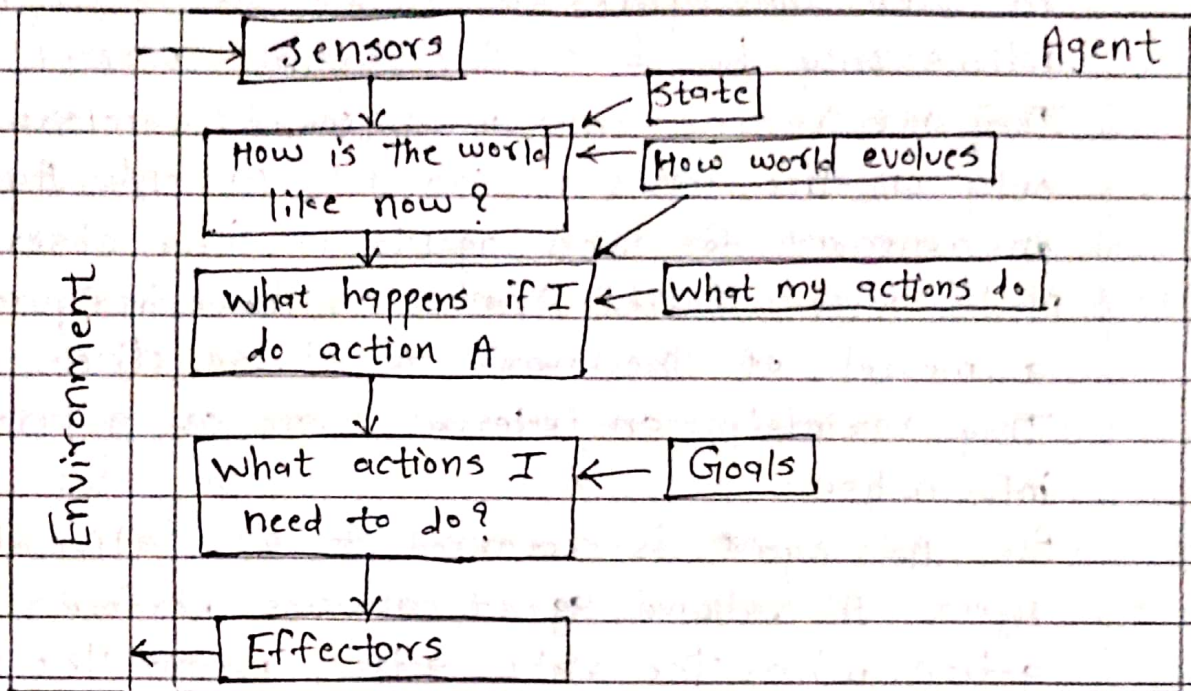 Sensors
Agent
State
How is the world
like now?
How world evolves
What happens if I
do action A
What my actions do.
What actions I
need to do?
Goals
Effectors
Environment